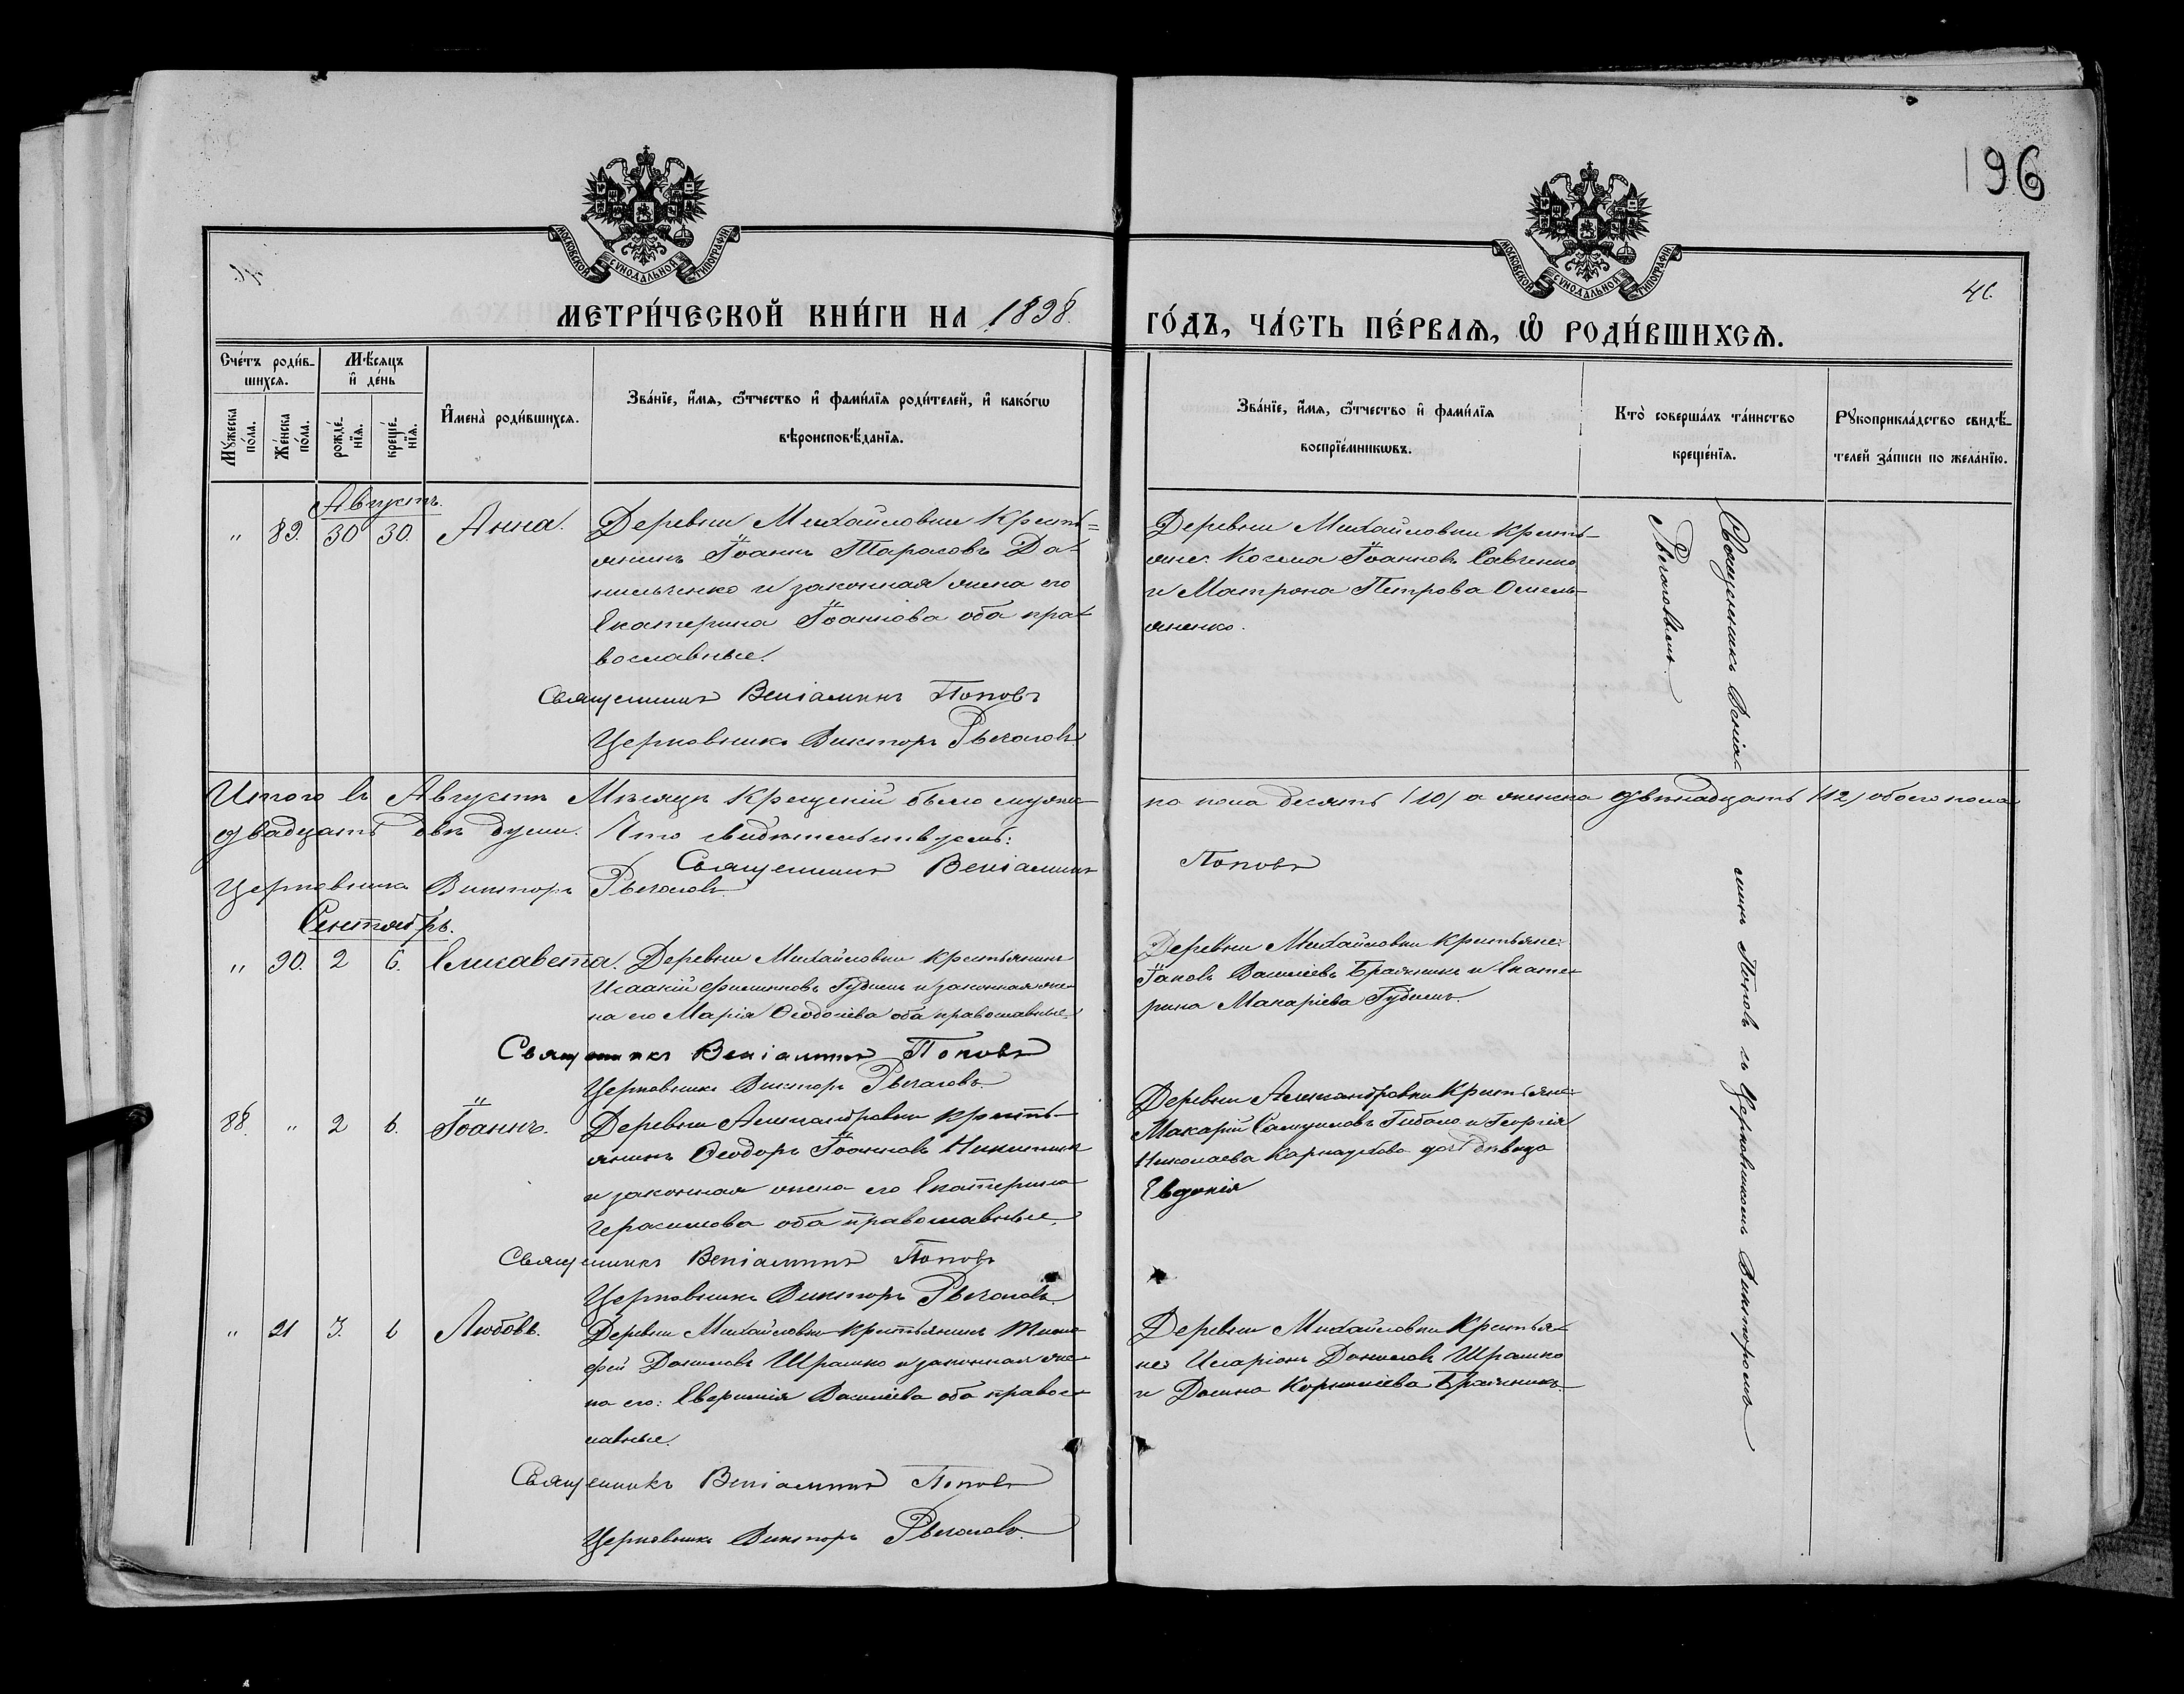 196
МОСКОВСКОЙ СУНОДАЛЬНОЙ ТИПОГРАФІИ
МОСКОВСКОЙ СУНОДАЛЬНОЙ ТИПОГРАФІИ
МЕТРИ́ЧЕСКОЙ КНИ́ГИ НА 1898.
ГО́ДЪ, ЧА́СТЬ ПЕ́РВАѦ, Ѽ РОДИ́ВШИХСѦ.
Сче́тъ роди́в-
шихсѧ.
Мѣ́сѧцъ
и҆ де́нь
Мꙋ́жеска
по́ла.
Же́нска
по́ла.
рожде́-
нїѧ.
креще́-
нїѧ.
И҆мена̀ роди́вшихсѧ.
Зва́нїе, и҆́мѧ, ѻ҆́тчество и҆ фами́лїѧ роди́телей, и҆ како́гѡ
вѣроисповѣ́данїѧ.
Зва́нїе, и҆́мѧ, ѻ҆́тчество и҆ фами́лїѧ
воспрїе́мникѡвъ.
Кто̀ соверша́лъ та́инство
креще́нїѧ.
Рꙋкоприкла́дство свидѣ́-
телей за́писи по жела́нїю.
Августъ.
" 89. 30 30. Анна.
Деревни Михайловки Кресть=
янинъ Іоаннъ Тарасовъ Да-
нильченко и законная жена его
Екатерина Іоаннова оба пра-
вославные.
Священникъ Веніаминъ Поповъ
Церковникъ Викторъ Рѣчаловъ
Деревни Михайловки Кресть-
яне: Косма Іоанновъ Савченко
и Матрона Петрова Омель-
яненко.
Итого въ Августѣ Мѣсяцѣ Крещеній было мужес-
ка пола десять (10) а женска двѣнадцать (12) обоего пола
двадцать двѣ души. Что свидѣтельствуемъ:
Священникъ Веніаминъ
Поповъ
Церковникъ Викторъ Рѣчаловъ
Сентябрь.
" 90. 2 6. Елисавета.
Деревни Михайловки Крестьянинъ
Исаакій Филипповъ Губинъ и законная же-
на его Марія Ѳеодосіева оба православные
Священникъ Веніаминъ Поповъ
Церковникъ Викторъ Рѣчаловъ
Деревни Михайловки Крестьяне:
Іаковъ Василіевъ Бражникъ и Екате-
рина Макаріева Губинъ.
88. " 2 6. Іоаннъ.
Деревни Александровки Кресть-
янинъ Ѳеодоръ Іоанновъ Никитинъ
и законная жена его Екатерина
Герасимова оба православные.
Священникъ Веніаминъ Поповъ
Церковникъ Викторъ Рѣчаловъ
Деревни Александровки Крестьяне
Макарій и Георгія
Николаева Карнаухова дочь дѣвица
Евдокія
" 91 3. 6 Любовь.
Деревни Михайловки Крестьянинъ Тимо-
фей Даниловъ Шрамко и законная же-
на его: Евфимія Василіева оба правос-
лавные.
Священникъ Веніаминъ Поповъ
Церковникъ Викторъ Рѣчаловъ.
Деревни Михайловки Крестья-
не: Иларіонъ Даниловъ Шрамко
и Домна Корниліева Бражникъ
Священникъ Веніа-
минъ Поповъ съ Церковникомъ Викторомъ
Рѣчаловымъ.